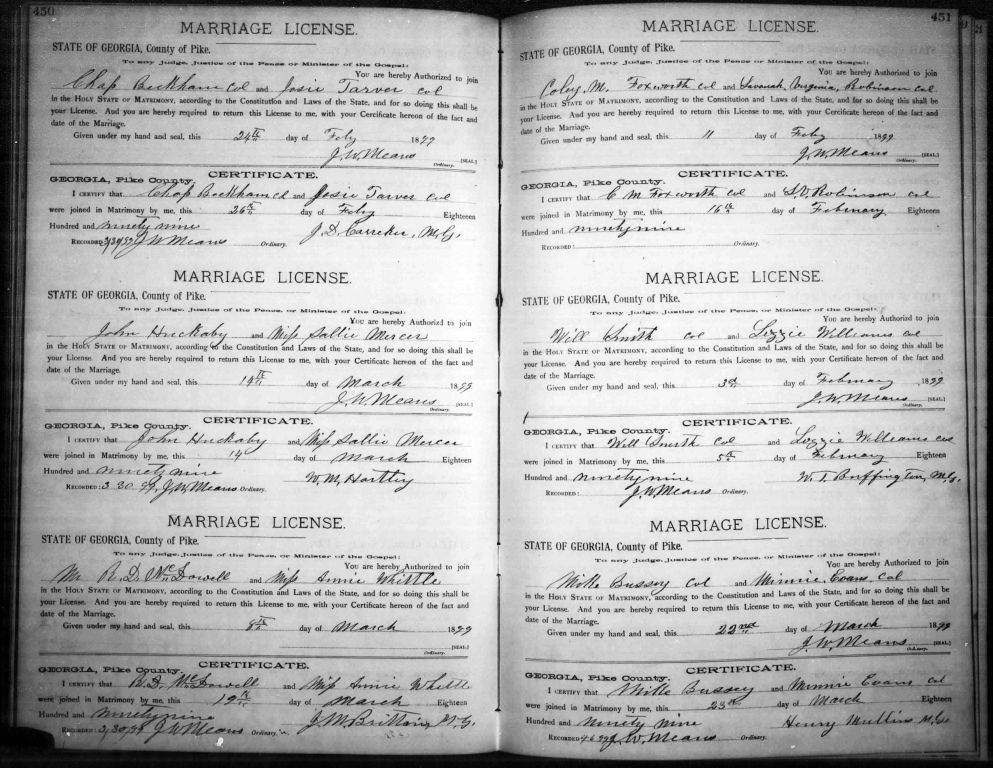 450
MARRIAGE LICENSE.
STATE OF GEORGIA, County of Pike.
To any Judge, Justice of the Peace or Minister of the Gospel:
You are hereby Authorized to join
Chap Beckham col and Josie Tarver col
in the HOLY STATE OF MATRIMONY, according to the Constitution and Laws of the State, and for so doing this shall be
your License. And you are hereby required to return this License to me, with your Certificate hereon of the fact and
date of the Marriage.
Given under my hand and seal, this 24th day of Feby 1899
J.W. Means [SEAL]
Ordinary.
CERTIFICATE.
GEORGIA, Pike County.
I CERTIFY that Chap Beckham col and Josie Tarver col
were joined in Matrimony by me, this 26th day of Feby Eighteen
Hundred and ninety nine J. D. Carreker, M.G.
RECORDED: 3/30/99 J.W. Means Ordinary.
MARRIAGE LICENSE.
STATE OF GEORGIA, County of Pike.
To any Judge, Justice of the Peace, or Minister of the Gospel:
You are hereby Authorized to join
John Huckaby and Miss Sallie Mercer
in the HOLY STATE OF MATRIMONY, according to the Constitution and Laws of the State, and for so doing this shall be
your License. And you are hereby required to return this License to me, with your Certificate hereon of the fact and
date of the Marriage.
Given under my hand and seal, this 14th day of March 1899
J.W. Means [SEAL]
Ordinary.
CERTIFICATE.
GEORGIA, Pike County.
I CERTIFY that John Huckaby and Miss Sallie Mercer
were joined in Matrimony by me, this 14 day of March Eighteen
Hundred and ninety nine W. M. Hartley
RECORDED: 3 30 99, J.W. Means Ordinary.
MARRIAGE LICENSE.
STATE OF GEORGIA, County of Pike.
To any Judge, Justice of the Peace, or Minister of the Gospel:
You are hereby Authorized to join
Mr R. D. McDowell and Miss Annie Whittle
in the HOLY STATE OF MATRIMONY, according to the Constitution and Laws of the State, and for so doing this shall be
your License. And you are hereby required to return this License to me, with your Certificate hereon of the fact and
date of the Marriage.
Given under my hand and seal, this 8th day of March 1899
[SEAL]
Ordinary.
CERTIFICATE.
GEORGIA, Pike County.
I CERTIFY that R. D. McDowell and Miss Annie Whittle
were joined in Matrimony by me, this 12th day of March Eighteen
Hundred and ninety nine J. M. Brittain, M.G.
RECORDED: 3/30/99 J.W. Means Ordinary.
451
MARRIAGE LICENSE.
STATE OF GEORGIA, County of Pike.
To any Judge, Justice of the Peace or Minister of the Gospel:
You are hereby Authorized to join
Coley M. Foxworth col and Savanah Virginia Robinson col
in the HOLY STATE OF MATRIMONY, according to the Constitution and Laws of the State, and for so doing this shall be
your License. And you are hereby required to return this License to me, with your Certificate hereon of the fact and
date of the Marriage.
Given under my hand and seal, this 11 day of Feby 1899
J.W. Means [SEAL]
Ordinary.
CERTIFICATE.
GEORGIA, Pike County.
I CERTIFY that C M Foxworth col and S.V. Robinson col
were joined in Matrimony by me, this 16th day of February Eighteen
Hundred and ninety nine
RECORDED: Ordinary.
MARRIAGE LICENSE.
STATE OF GEORGIA, County of Pike.
To any Judge, Justice of the Peace, or Minister of the Gospel:
You are hereby Authorized to join
Will Smith col and Lizzie Williams col
in the HOLY STATE OF MATRIMONY, according to the Constitution and Laws of the State, and for so doing this shall be
your License. And you are hereby required to return this License to me, with your Certificate hereon of the fact and
date of the Marriage.
Given under my hand and seal, this 3rd day of February 1899
J.W. Means [SEAL]
Ordinary.
CERTIFICATE.
GEORGIA, Pike County.
I CERTIFY that Will Smith Col and Lizzie Williams col
were joined in Matrimony by me, this 5th day of February Eighteen
Hundred and ninety nine W. T. Buffington, M.G.
RECORDED: J.W. Means Ordinary.
MARRIAGE LICENSE.
STATE OF GEORGIA, County of Pike.
To any Judge, Justice of the Peace, or Minister of the Gospel:
You are hereby Authorized to join
Milke Bussey Col and Minnie Evans, Col
in the HOLY STATE OF MATRIMONY, according to the Constitution and Laws of the State, and for so doing this shall be
your License. And you are hereby required to return this License to me, with your Certificate hereon of the fact and
date of the Marriage.
Given under my hand and seal, this 22nd day of March 1899
J.W. Means [SEAL]
Ordinary.
CERTIFICATE.
GEORGIA, Pike County.
I CERTIFY that Milke Bussey and Minnie Evans Col
were joined in Matrimony by me, this 23rd day of March Eighteen
Hundred and ninety nine Henry Mullins M.G.
RECORDED 4 6 99 J.W. Means Ordinary.